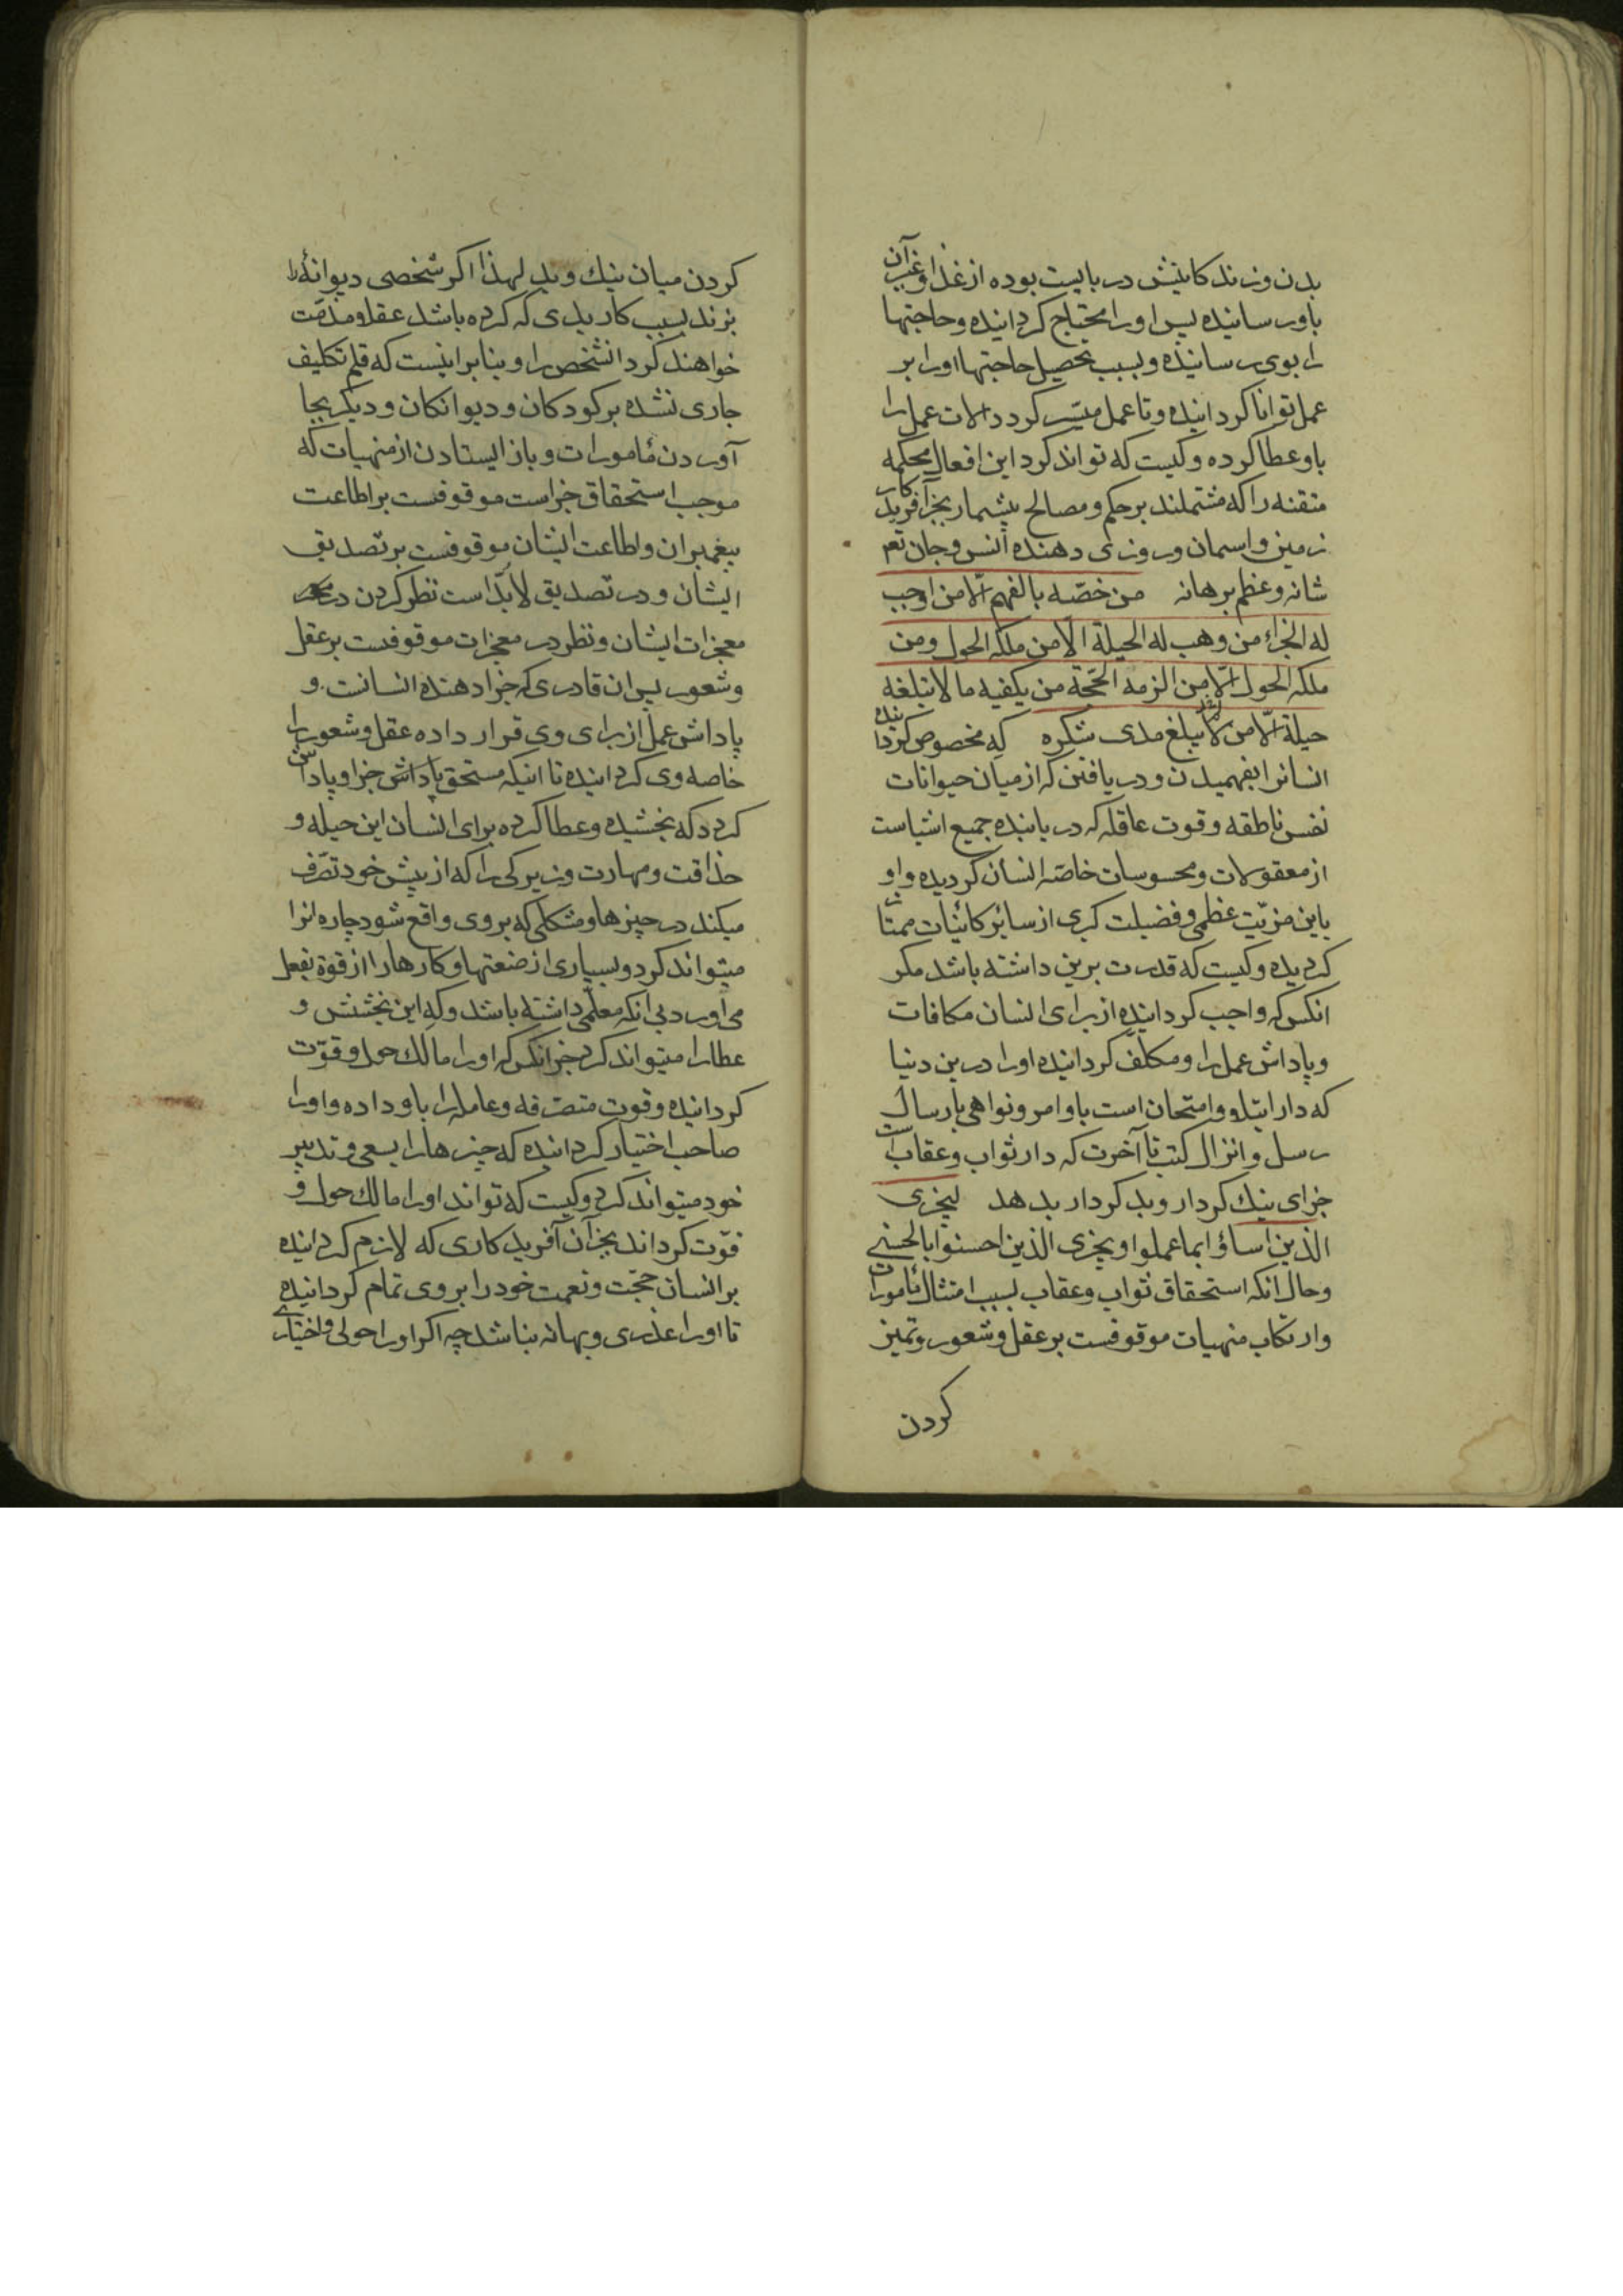 بدن و زندکانیش در بایست بوده از غذا و غیر آن
باو رسانیده پس او را محتاج کردانیده و حاجتها
را بوی رسانیده و بسبب تحصیل حاجتها او را بر
عمل توانا کردانیده و تا عمل میسّر کردد الات عمل را
باو عطا کرده و کیست که تواند کرد این افعال محکمه
متقنه را که مشتملند بر حکم و مصالح بیشمار بجز آفریدکار
زمین و اسمان و روزی دهنده انس و جان تعم
شانه و عظم برهانه من خصّه بالفهم الّا من اوجب
له الجزاء من وهب له الحیلة الّا من ملکه الحول و من
ملکه الحول الّا من الزمه الحجّة من یکفیه ما لا تبلغه
حیلة الّا من لا یبلغ مدی شکره که مخصوص کردانیده
انسانرا بفهمیدن و دریافتن که از میان حیوانات
نفس ناطقه و قوت عاقله که دریابنده جمیع اشیاست
از معقولات و محسوسات خاصّه انسان کردیده و او
باین مزیّت عظمی و فضیلت کبری از سائر کائنات ممتاز
کردیده و کیست که قدرت برین داشته باشد مکر
انکس که واجب کردانیده از برای انسان مکافات
و پاداش عمل را و مکلّف کردانیده او را درین دنیا
که دار ابتلا و امتحان است باوامر و نواهی بارسال
رسل و انزال کتب تا آخرت که دار ثواب و عقاب است
جزای نیك کردار و بد کردار بدهد لیجزی
الذین اساؤا بما عملوا و یجزی الذین احسنوا بالحسنی
و حال انکه استحقاق ثواب و عقاب بسبب امتثال مأمورات
و ارتکاب منهیات موقوفست بر عقل و شعور و تمیز
کردن
کردن میان نیك و بد لهذا اکر شخصی دیوانۀ را
بزند بسبب کار بدی که کرده باشد عقلا مذمّت
خواهند کرد انشخص را و بنا بر اینست که قلم تکلیف
جاری نشده بر کودکان و دیوانکان و دیکر بجا
آوردن مأمورات و باز ایستادن از منهیات که
موجب استحقاق جزاست موقوفست بر اطاعت
پیغمبران و اطاعت ایشان موقوفست بر تصدیق
ایشان و در تصدیق لابدّ است نظر کردن در
معجزات ایشان و نظر در معجزات موقوفست بر عقل
و شعور پس ان قادری که جزا دهنده انسانست و
پاداش عمل از برای وی قرار داده عقل و شعور را
خاصه وی کردانیده تا اینکه مستحق پاداش جزا و پاداش
کردد که بخشیده و عطا کرده برای انسان این حیله و
حذاقت و مهارت و زیرکی را که از پیش خود تصرّف
میکند در چیزها و مشکلی که بر وی واقع شود چاره انرا
میتواند کرد و بسیاری از صنعتها و کارها را از قوة بفعل
می آورد بی انکه معلّمی داشته باشد و که این بخشش و
عطا را میتواند کرد جز انکس که او را مالك حول و قوّت
کردانیده و قوت متصرفه و عامله را باو داده و او را
صاحب اختیار کردانیده که چیزها را بسعی و تدبیر
خود میتواند کرد و کیست که تواند او را مالك حول و
قوّت کرداند بجز آن آفریدکاری که لازم کردانیده
بر انسان حجّت و نعمت خود را بر وی تمام کردانیده
تا او را عذری و بهانه نباشد چه اکر او را حولی و اختیاری